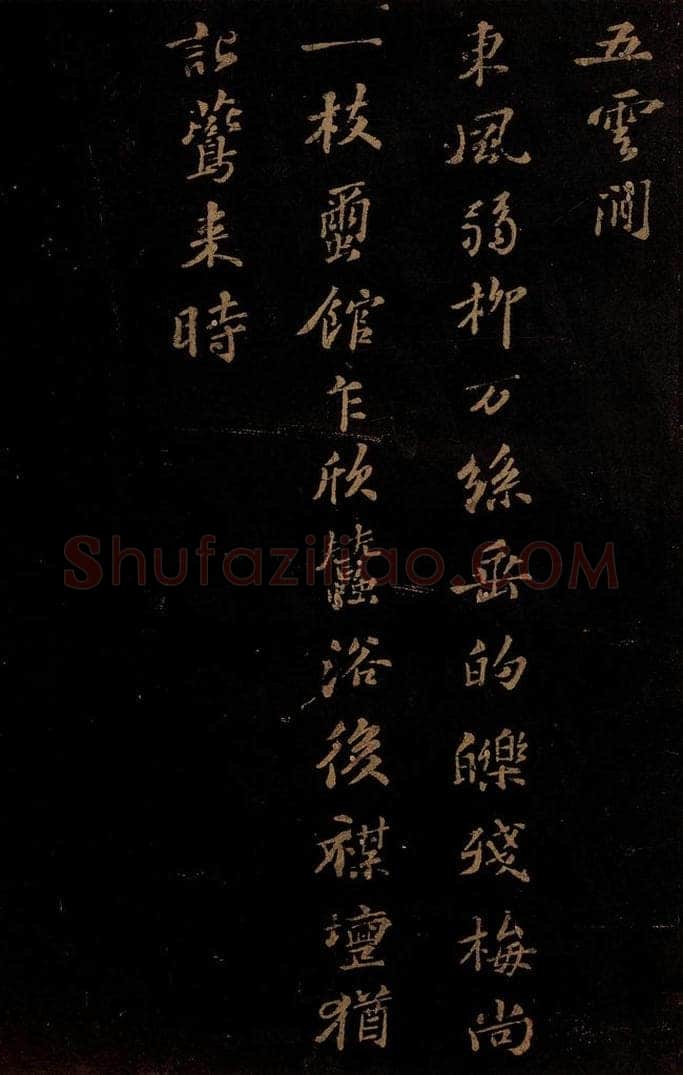 五雲間
東風弱柳万絲垂的皪殘梅尚
一枝蠒館乍欣蠶浴後禖壇猶
記鷰来時
Shufaziliao.COM